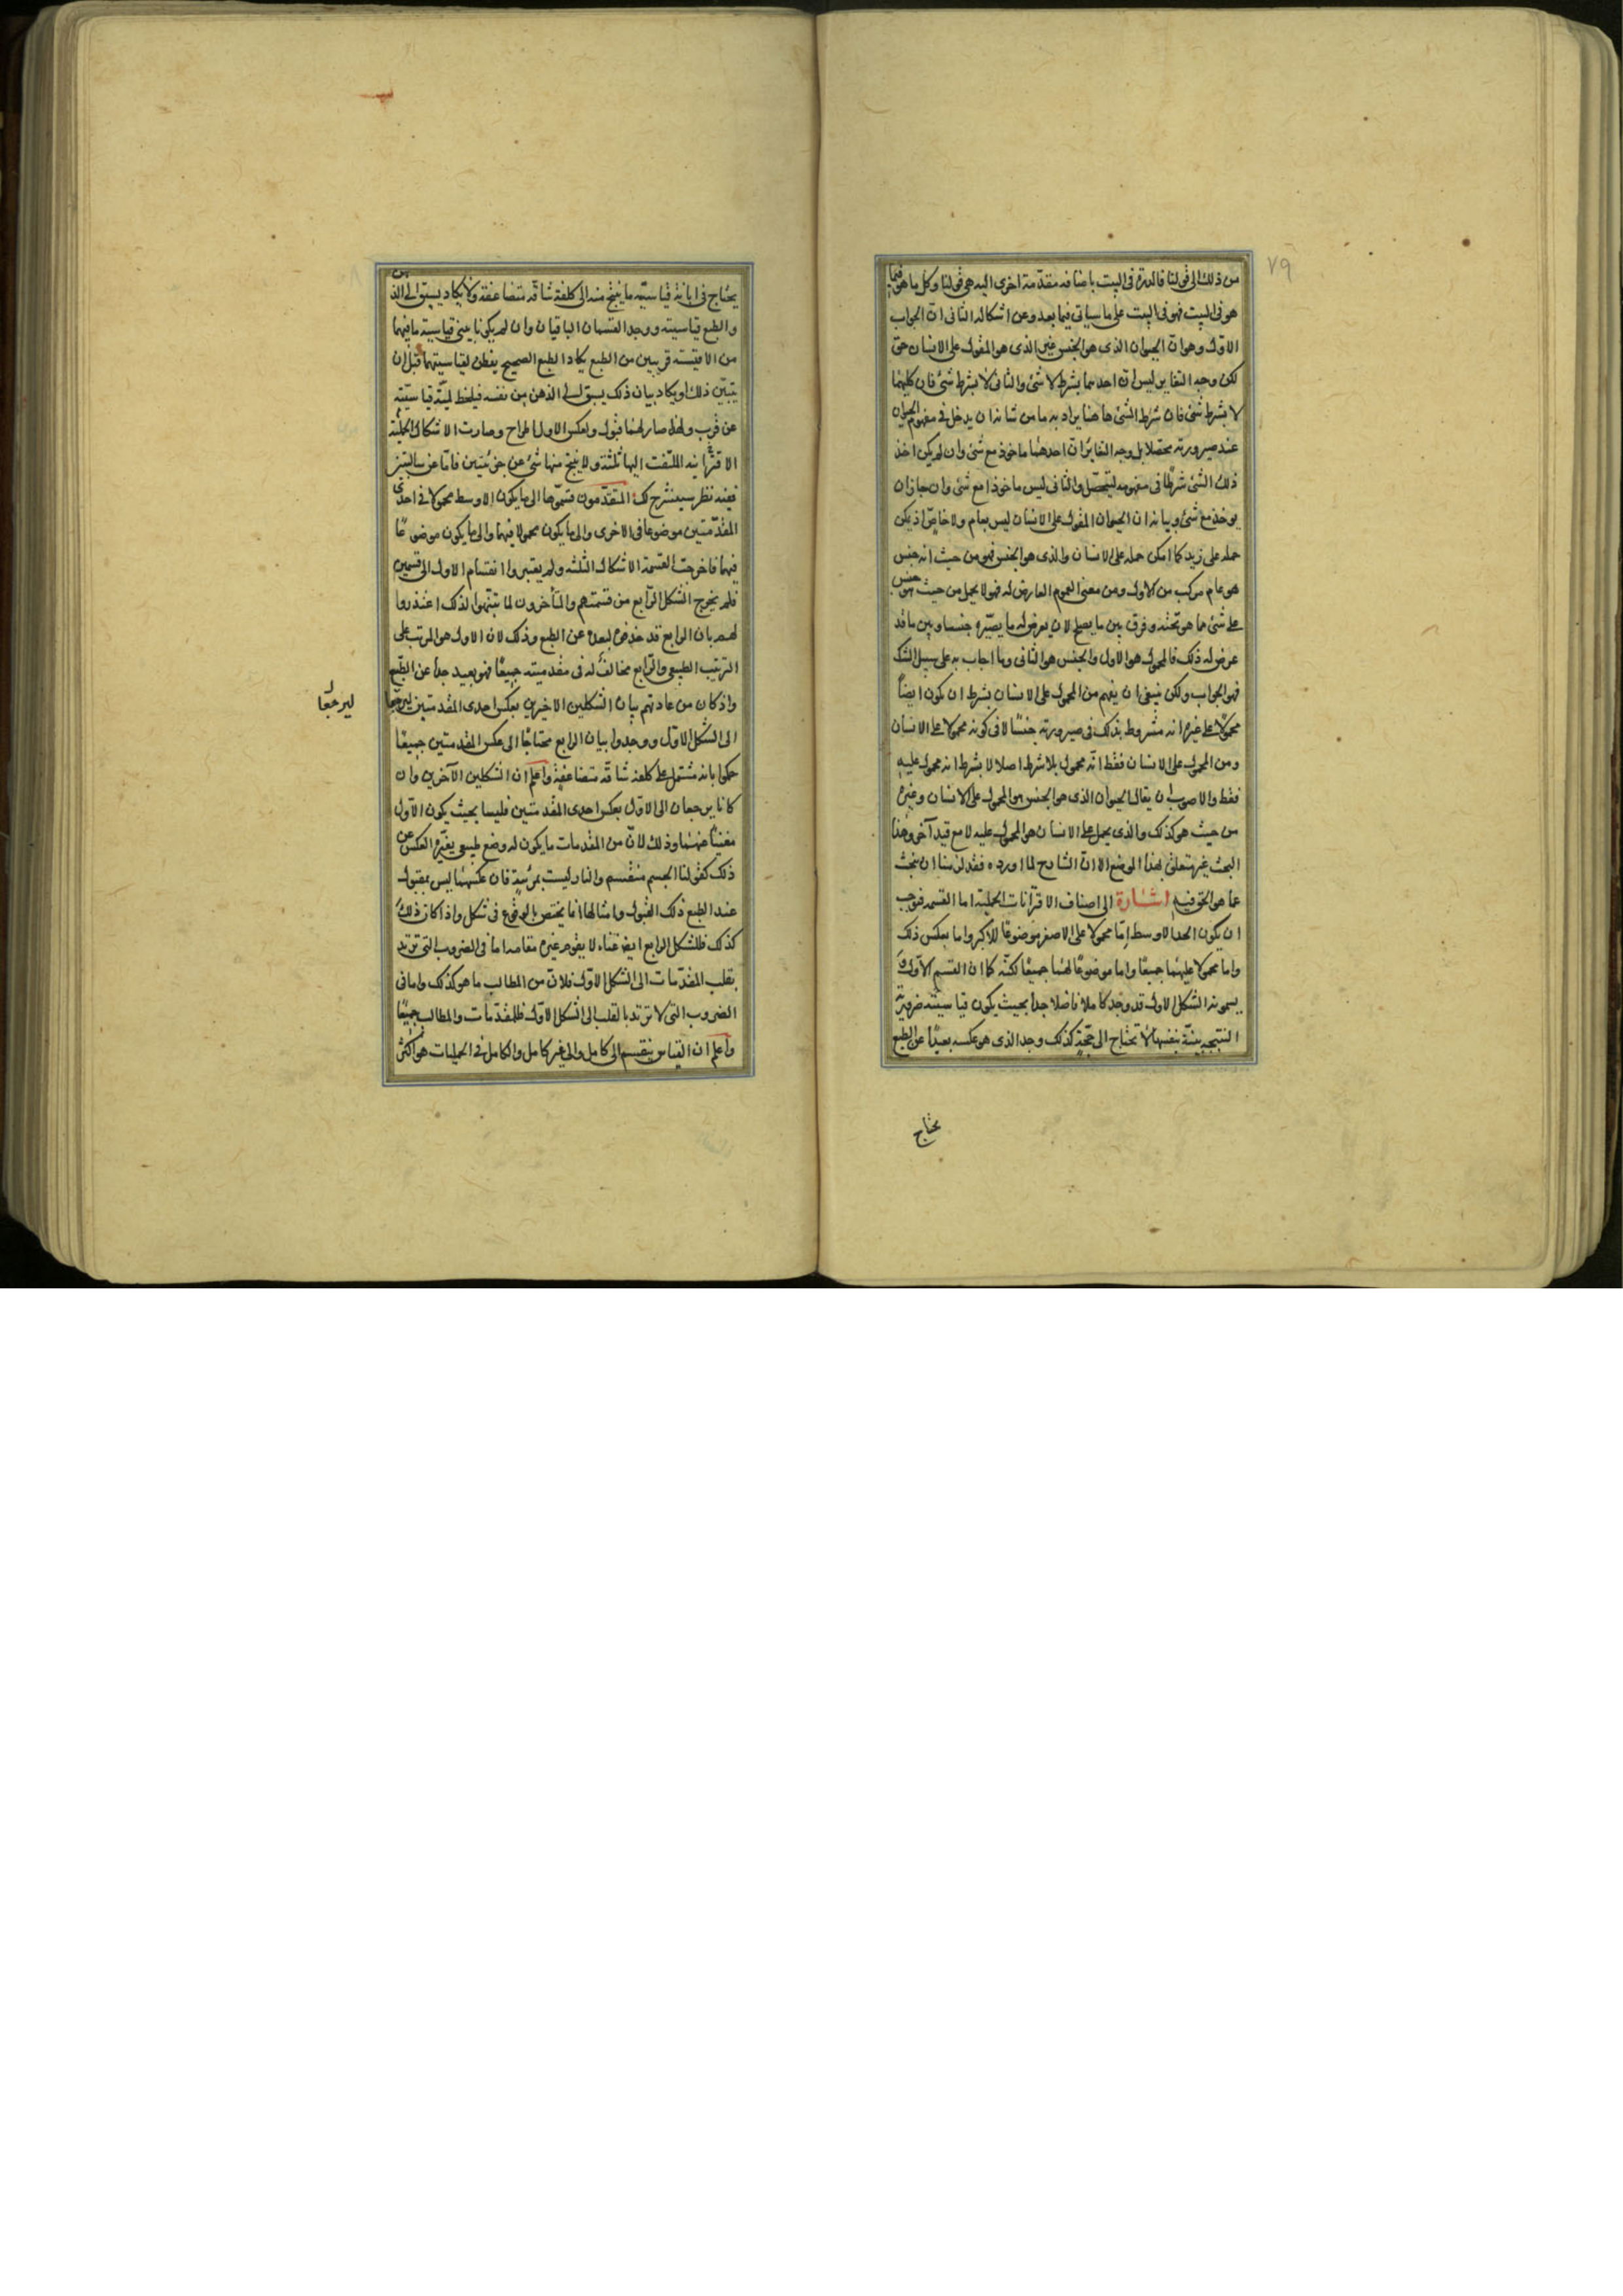 ٧٩
من ذلك الى قولنا فالدرة فى البيت باضافه مقدمة اخرى اليه هى قولنا وكل ما هو فيما
هو فى البيت فهو فى البيت على ما سياتى فيما بعد وعن اشكاله الثانى ان الجواب
الاول وهو ان الحيوان الذى هو الجنس غير الذى هو المقول على الانسان حق
لكن وجه التغاير ليس ان احدهما بشرط لا شئ والثانى لا بشرط شئ فان كليهما
لا بشرط شئ فان شرط الشئ هاهنا يراد به ما من شانه ان يدخل فى مفهوم الحيوان
عند صيرورته محصلا بل وجه التغاير ان احدهما ماخوذ مع شئ وان لم يكن اخذ
ذلك الشئ شرطا فى مفهومه ليتحصل والثانى ليس ماخوذا مع شئ وان جاز ان
يوخذ مع شئ وبيانه ان الحيوان المقول على الانسان ليس بعام ولا خاص اذ يمكن
حمله على زيد كما امكن حمله على الانسان والذى هو الجنس فهو من حيث انه جنس
هو عام مركب من الاول ومن معنى العموم العارض له فهو لا يحمل من حيث هو جنس
على شئ مما هو تحته وفرق بين ما يصلح لان يعرض له ما يصيره جنسا وبين ما قد
عرض له ذلك فالمحمول هو الاول والجنس هو الثانى وما اجاب به على سبيل الشك
فهو الجواب ولكن ينبغى ان يفهم من المحمول على الانسان بشرط ان يكون ايضا
محمولا على غيره انه مشروط بذلك فى صيرورته جنسا لا فى كونه محمولا على الانسان
ومن المحمول على الانسان فقط انه محمول بلا شرط اصلا لا بشرط انه محمول عليه
فقط والاصوب ان يقال الحيوان الذى هو الجنس هو المحمول على الانسان وغيره
من حيث هو كذلك والذى يحمل على الانسان هو المحمول عليه لا مع قيد آخر وهذا
البحث غير متعلق بهذا الموضع الا ان الشارح لما اورده فقد لزمنا ان نبحث
عما هو الحق فيه اشارة الى اصناف الاقترانات الحملية اما القسمه فوجب
ان يكون الحد الاوسط اما محمولا على الاصغر موضوعا للاكبر واما بعكس ذلك
واما محمولا عليهما جميعا واما موضوعا لهما جميعا لكنه كما ان القسم الاول و
يسمونه الشكل الاول قد وجد كاملا فاضلا جدا بحيث يكون قياسيته ضرورية
النتيجه بينة بنفسها لا تحتاج الى حجة كذلك وجد الذى هو عكسه بعيدا عن الطبع
يحتاج
يحتاج فى ابانة قياسيته ما ينتج منه الى كلفة شاقة متضاعفة ولا يكاد يسبق الى الذهن
والطبع قياسيته ووجد القسمان الباقيان وان لم يكونا بينى قياسية ما فيهما
من الاقيسة قريبين من الطبع يكاد الطبع الصحيح يفطن لقياسيتهما قبل ان
يتبين ذلك او يكاد بيان ذلك يسبق الى الذهن من نفسه فيلحظ لمية قياسيته
عن قرب ولهذا صار لهما قبول ولعكس الاول اطراح وصارت الاشكال الحملية
الاقترانيه الملتفت اليها ثلثة ولا ينتج منها شئ عن جزئيتين فاما عن سالبتين
ففيه نظر سيشرح لك المتقدمون قسموها الى ما يكون الاوسط محمولا فى احدى
المقدمتين موضوعا فى الاخرى والى ما يكون محمولا فيهما والى ما يكون موضوعا
فيهما فاخرجت القسمة الاشكال الثلثه ولم يعتبروا انقسام الاول الى قسمين
فلم يخرج الشكل الرابع من قسمتهم والمتأخرون لما تنبهوا لذلك اعتذروا
لهم بان الرابع قد حذف لبعده عن الطبع وذلك لان الاول هو المرتب على
الترتيب الطبيعى والرابع مخالف له فى مقدميته جميعا فهو بعيد جدا عن الطبع
واذ كان من عادتهم بيان الشكلين الاخيرين بعكس احدى المقدمتين ليرجعا
ليرجعا
الى الشكل الاول ووجدوا بيان الرابع محتاجا الى عكس المقدمتين جميعا
حكموا بانه مشتمل على كلفة شاقة متضاعفة واعلم ان الشكلين الآخرين وان
كانا يرجعان الى الاول بعكس احدى المقدمتين فليسا بحيث يكون الاول
مغنيا عنهما وذلك لان من المقدمات ما يكون له وضع طبيعى يغيره العكس عن
ذلك كقولنا الجسم منقسم والنار ليست بمرئية فان عكسهما ليس بمقبول
عند الطبع ذلك القبول وامثالها انما يختص بالوقوع فى شكل واذا كان ذلك
كذلك فللشكل الرابع ايضا غناء لا يقوم غيره مقامه اما فى الضروب التى ترتد
بقلب المقدمات الى الشكل الاول فلان من المطالب ما هو كذلك واما فى
الضروب التى لا ترتد بالقلب الى الشكل الاول فللمقدمات والمطالب جميعا
واعلم ان القياس ينقسم الى كامل والى غير كامل والكامل فى الحمليات هو اكثر